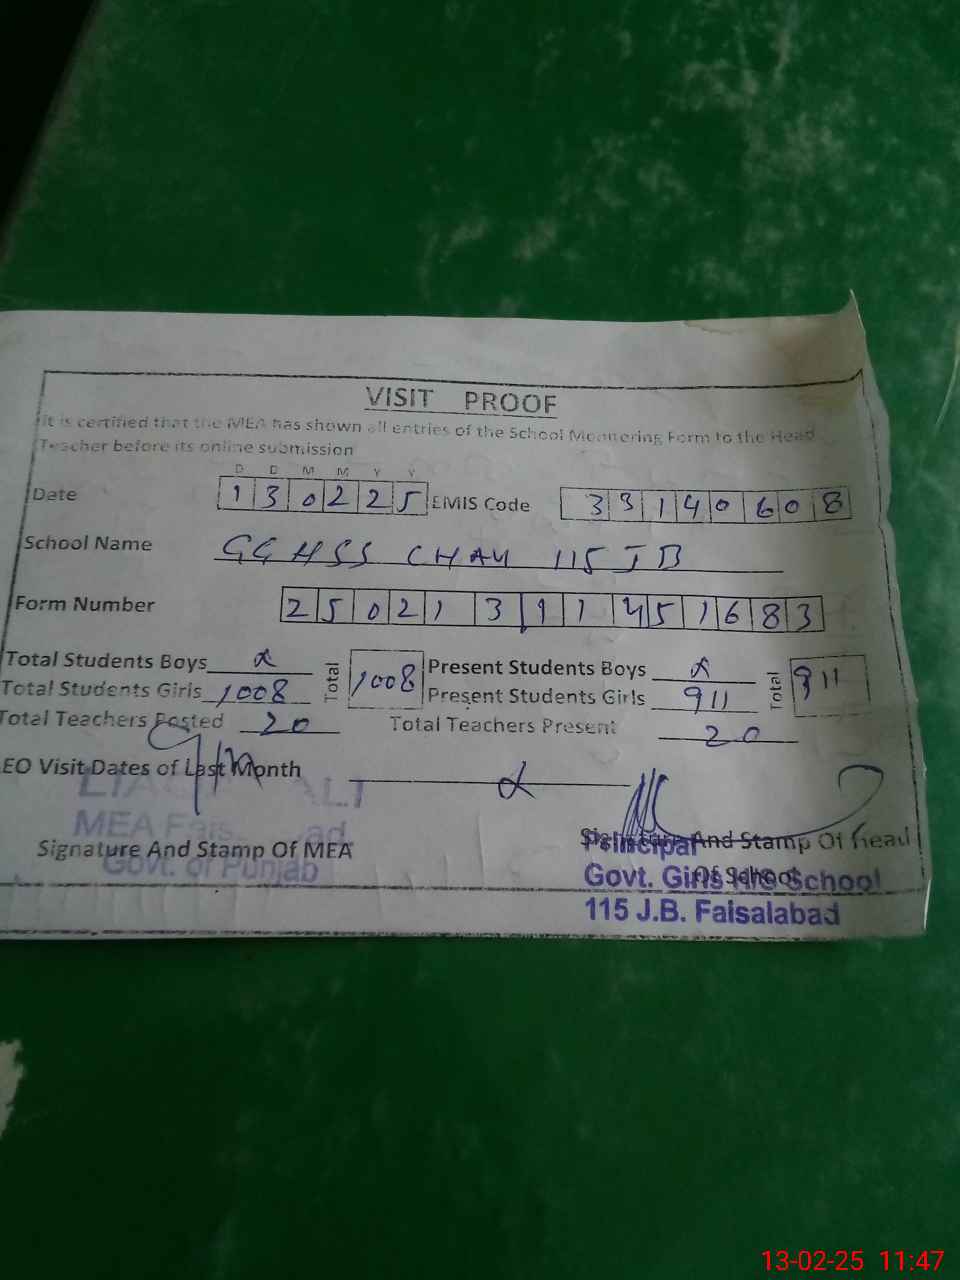 VISIT PROOF
It is certified that the MEA has shown all entries of the School Monitering Form to the Head
Teacher before its online submission
D D M M Y Y
Date 1 3 0 2 2 5 EMIS Code 3 3 1 4 0 6 0 8
School Name GGHSS CHAK 115 JB
Form Number 2 5 0 2 1 3 1 1 4 5 1 6 8 3
Total Students Boys Total Present Students Boys Total
Total Students Girls 1008 1008 Present Students Girls 911 911
Total Teachers Posted 20 Total Teachers Present 20
EO Visit Dates of Last Month
ALI
MEA
Govt. of Punjab
Signature And Stamp Of MEA
Signature And Stamp Of Head
Of School
Principal
Govt. Girls H/S School
115 J.B. Faisalabad
13-02-25 11:47